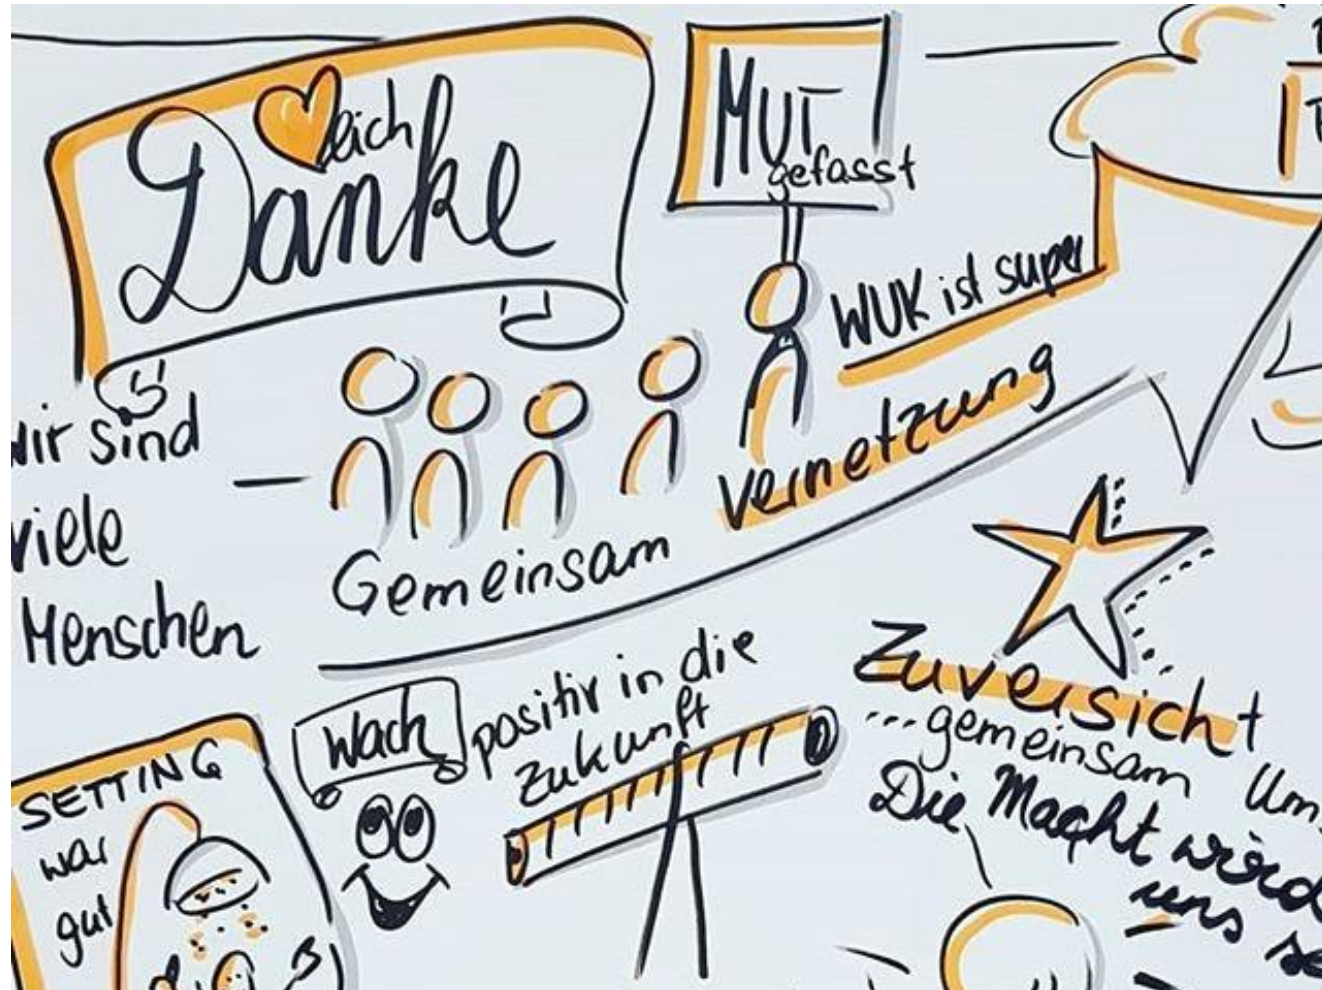 ♥lich
Danke
MUT
gefasst
WUK ist super
vernetzung
wir sind
viele
Menschen
Gemeinsam
Wach
positiv in die
Zukunft
Zuversicht
... gemeinsam
Die Macht
uns
SETTING
war
gut